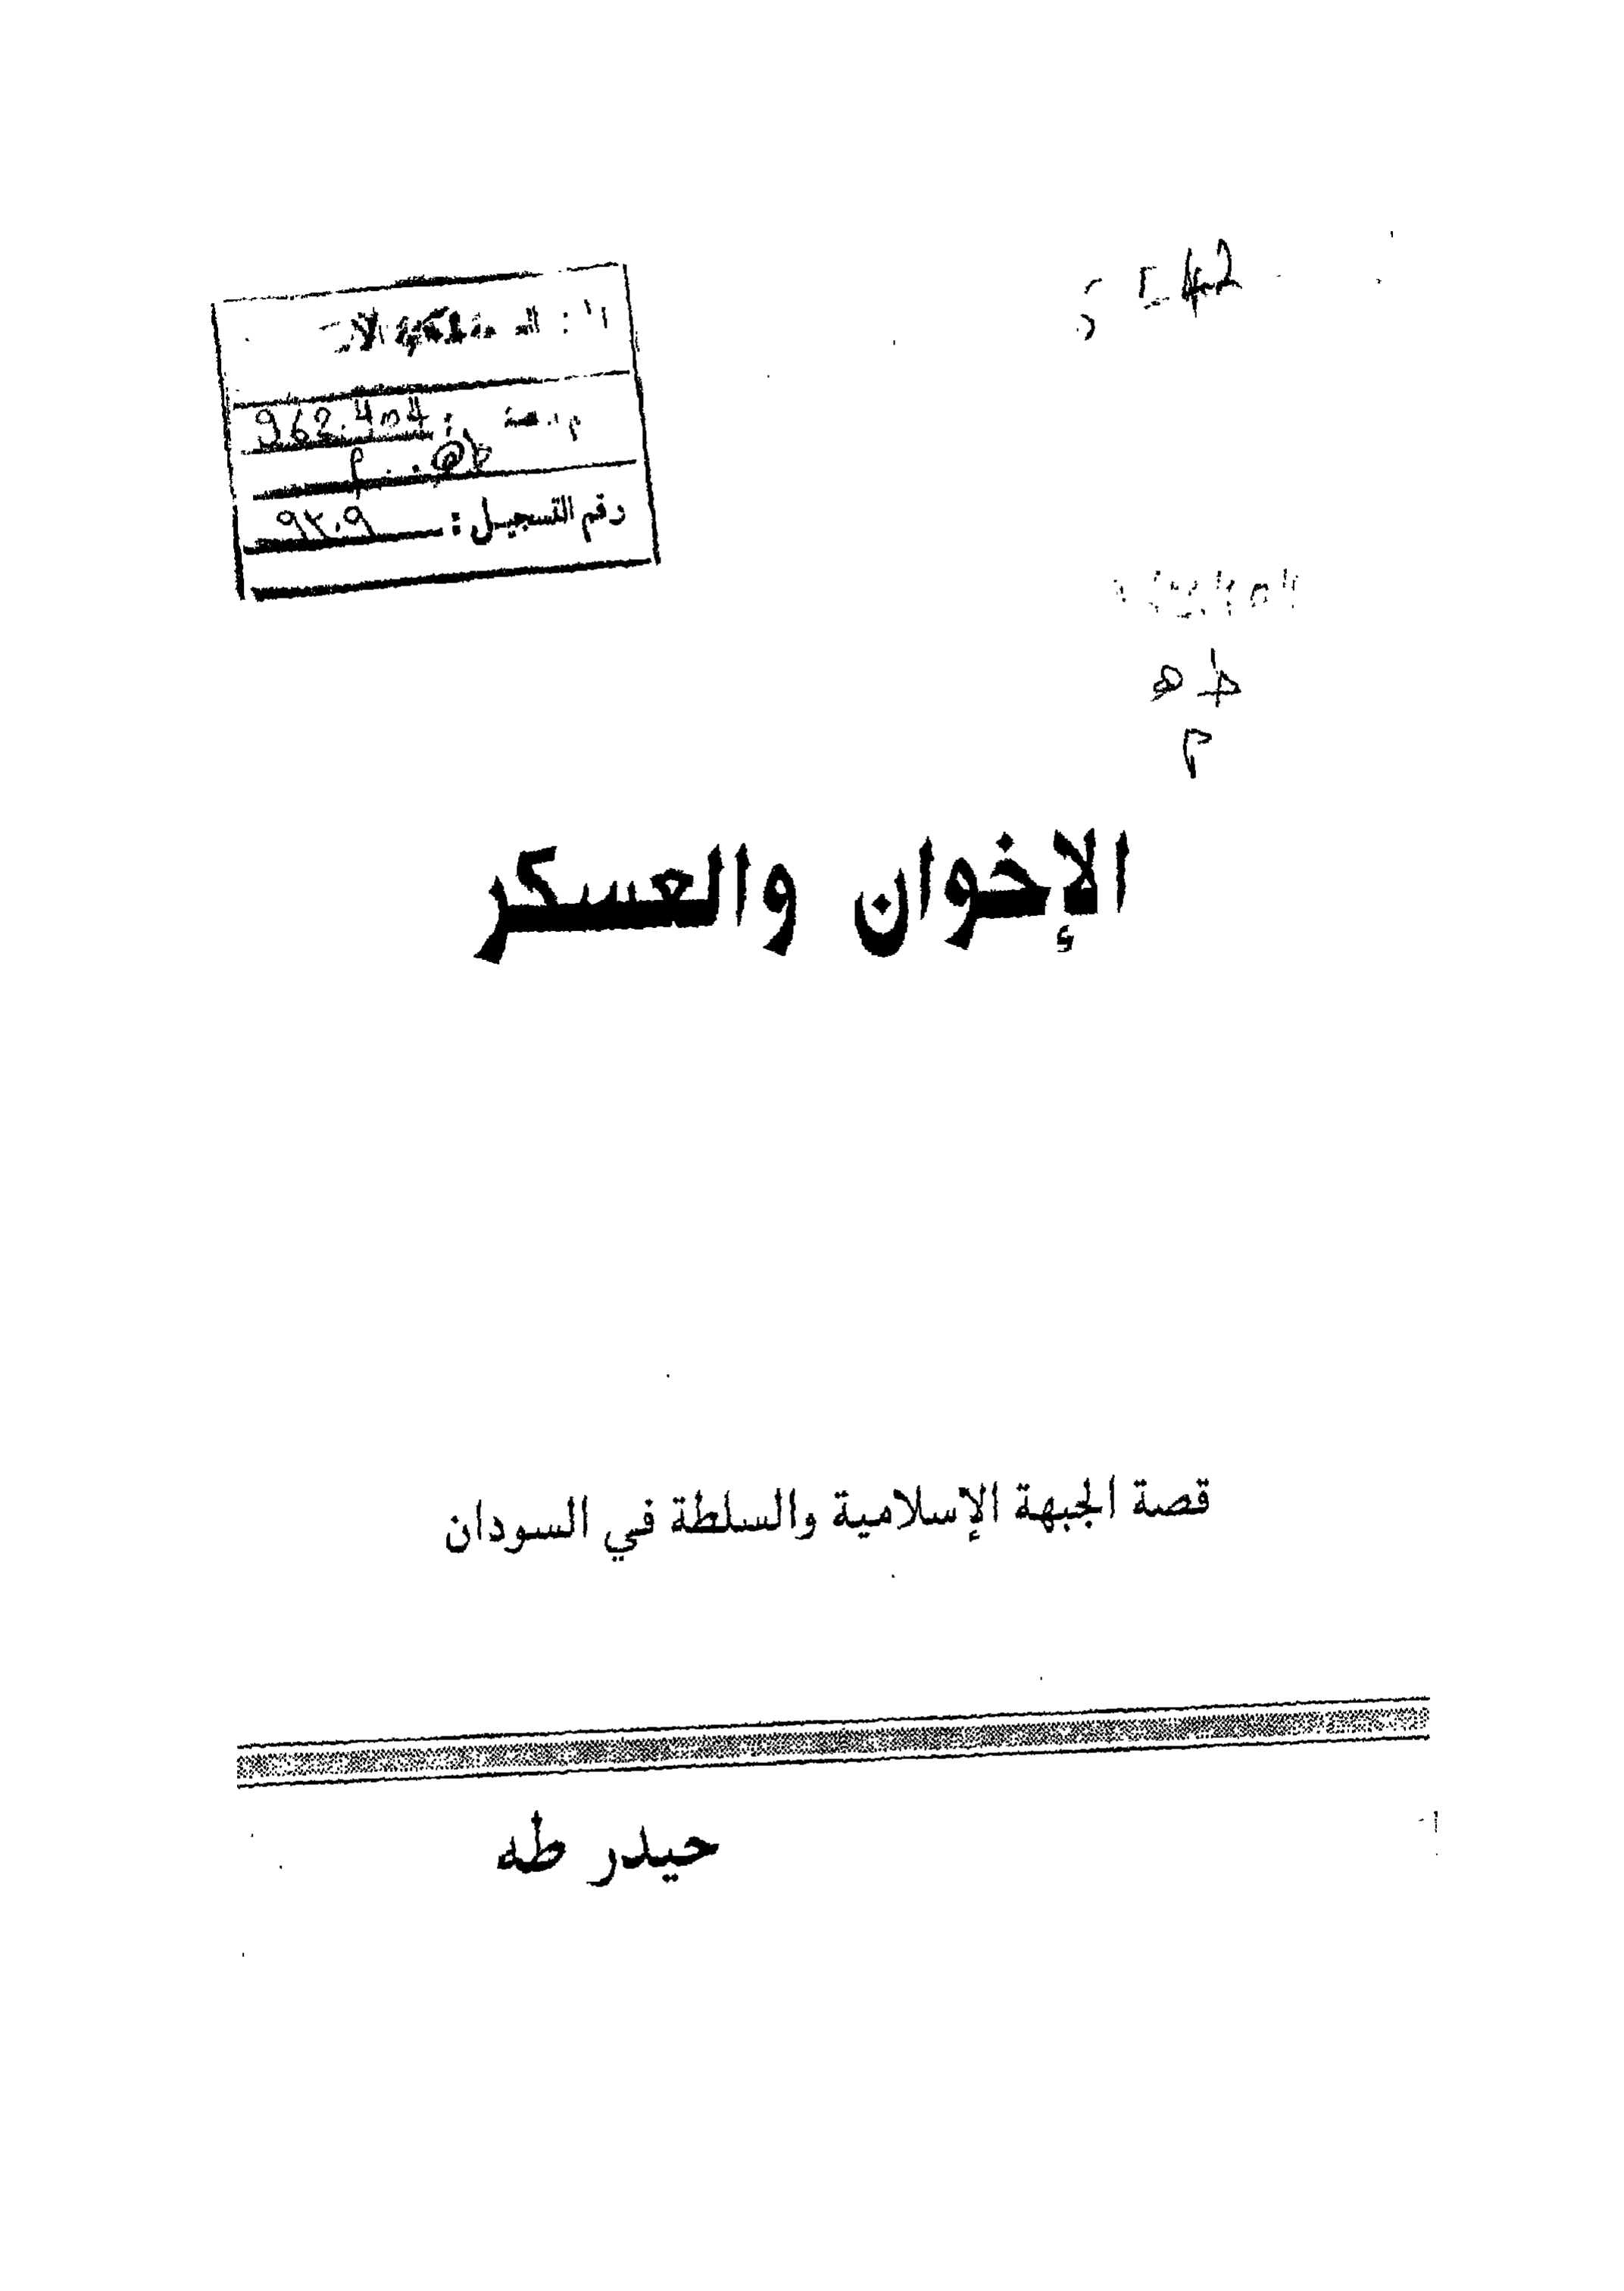 962.404
رقم التسجيل: ٩٣٠٩
ط ه
م
الإخوان والعسكر
قصة الجبهة الإسلامية والسلطة في السودان
حيدر طه